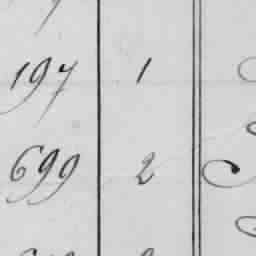 197 1
699 2